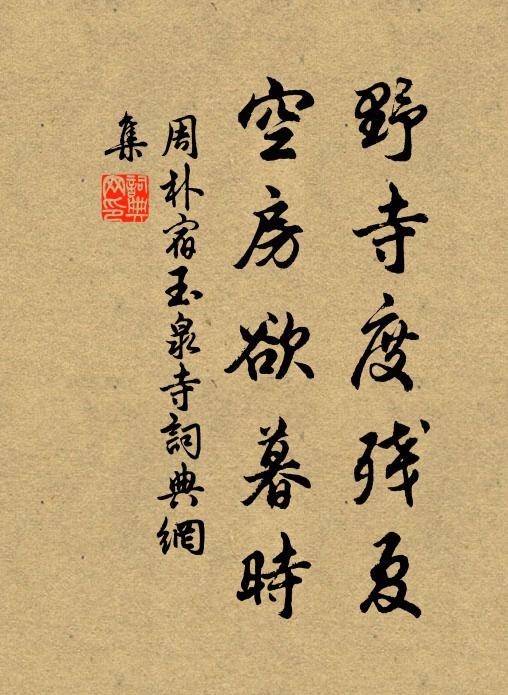 野寺度残夏
空房欲暮時
周朴宿玉泉寺詞典網
集
詞典
网印